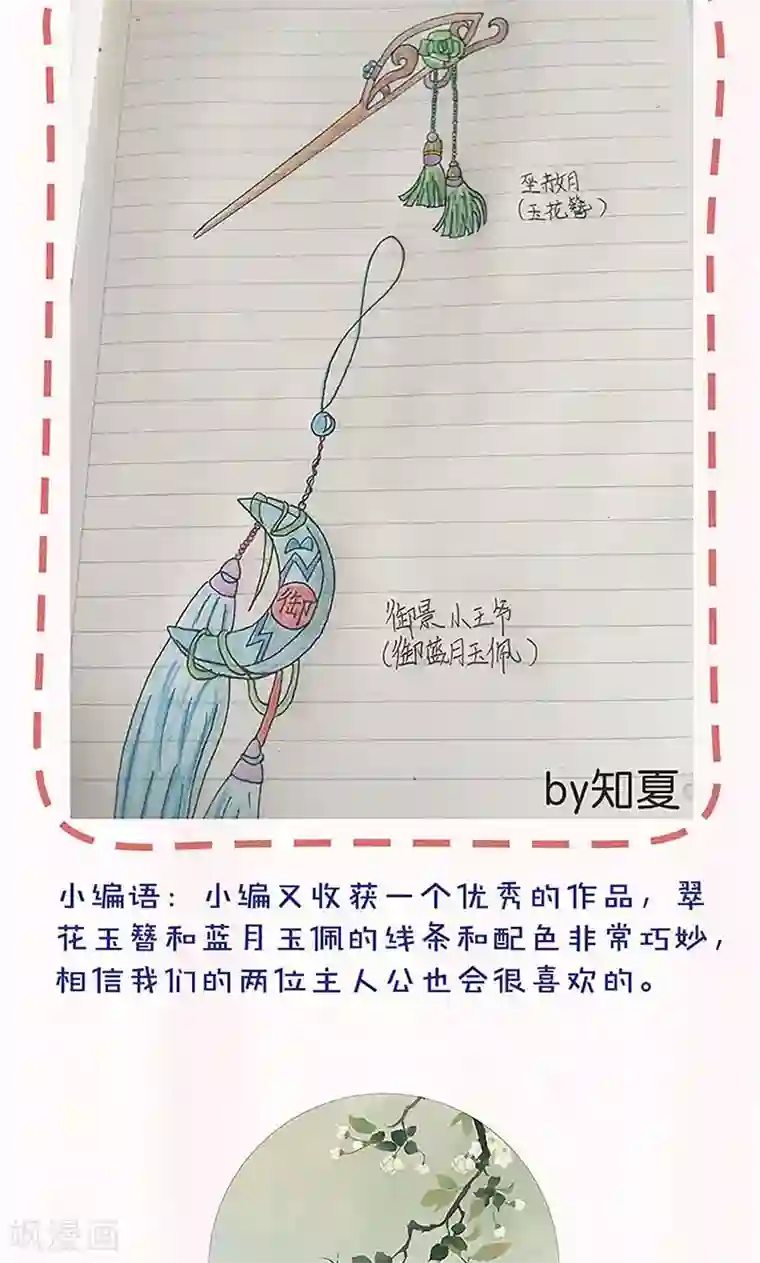 巫赦月
(玉花簪)
御
御景小王爷
(御蓝月玉佩)
by知夏
小编语：小编又收获一个优秀的作品，翠
花玉簪和蓝月玉佩的线条和配色非常巧妙，
相信我们的两位主人公也会很喜欢的。
飒漫画